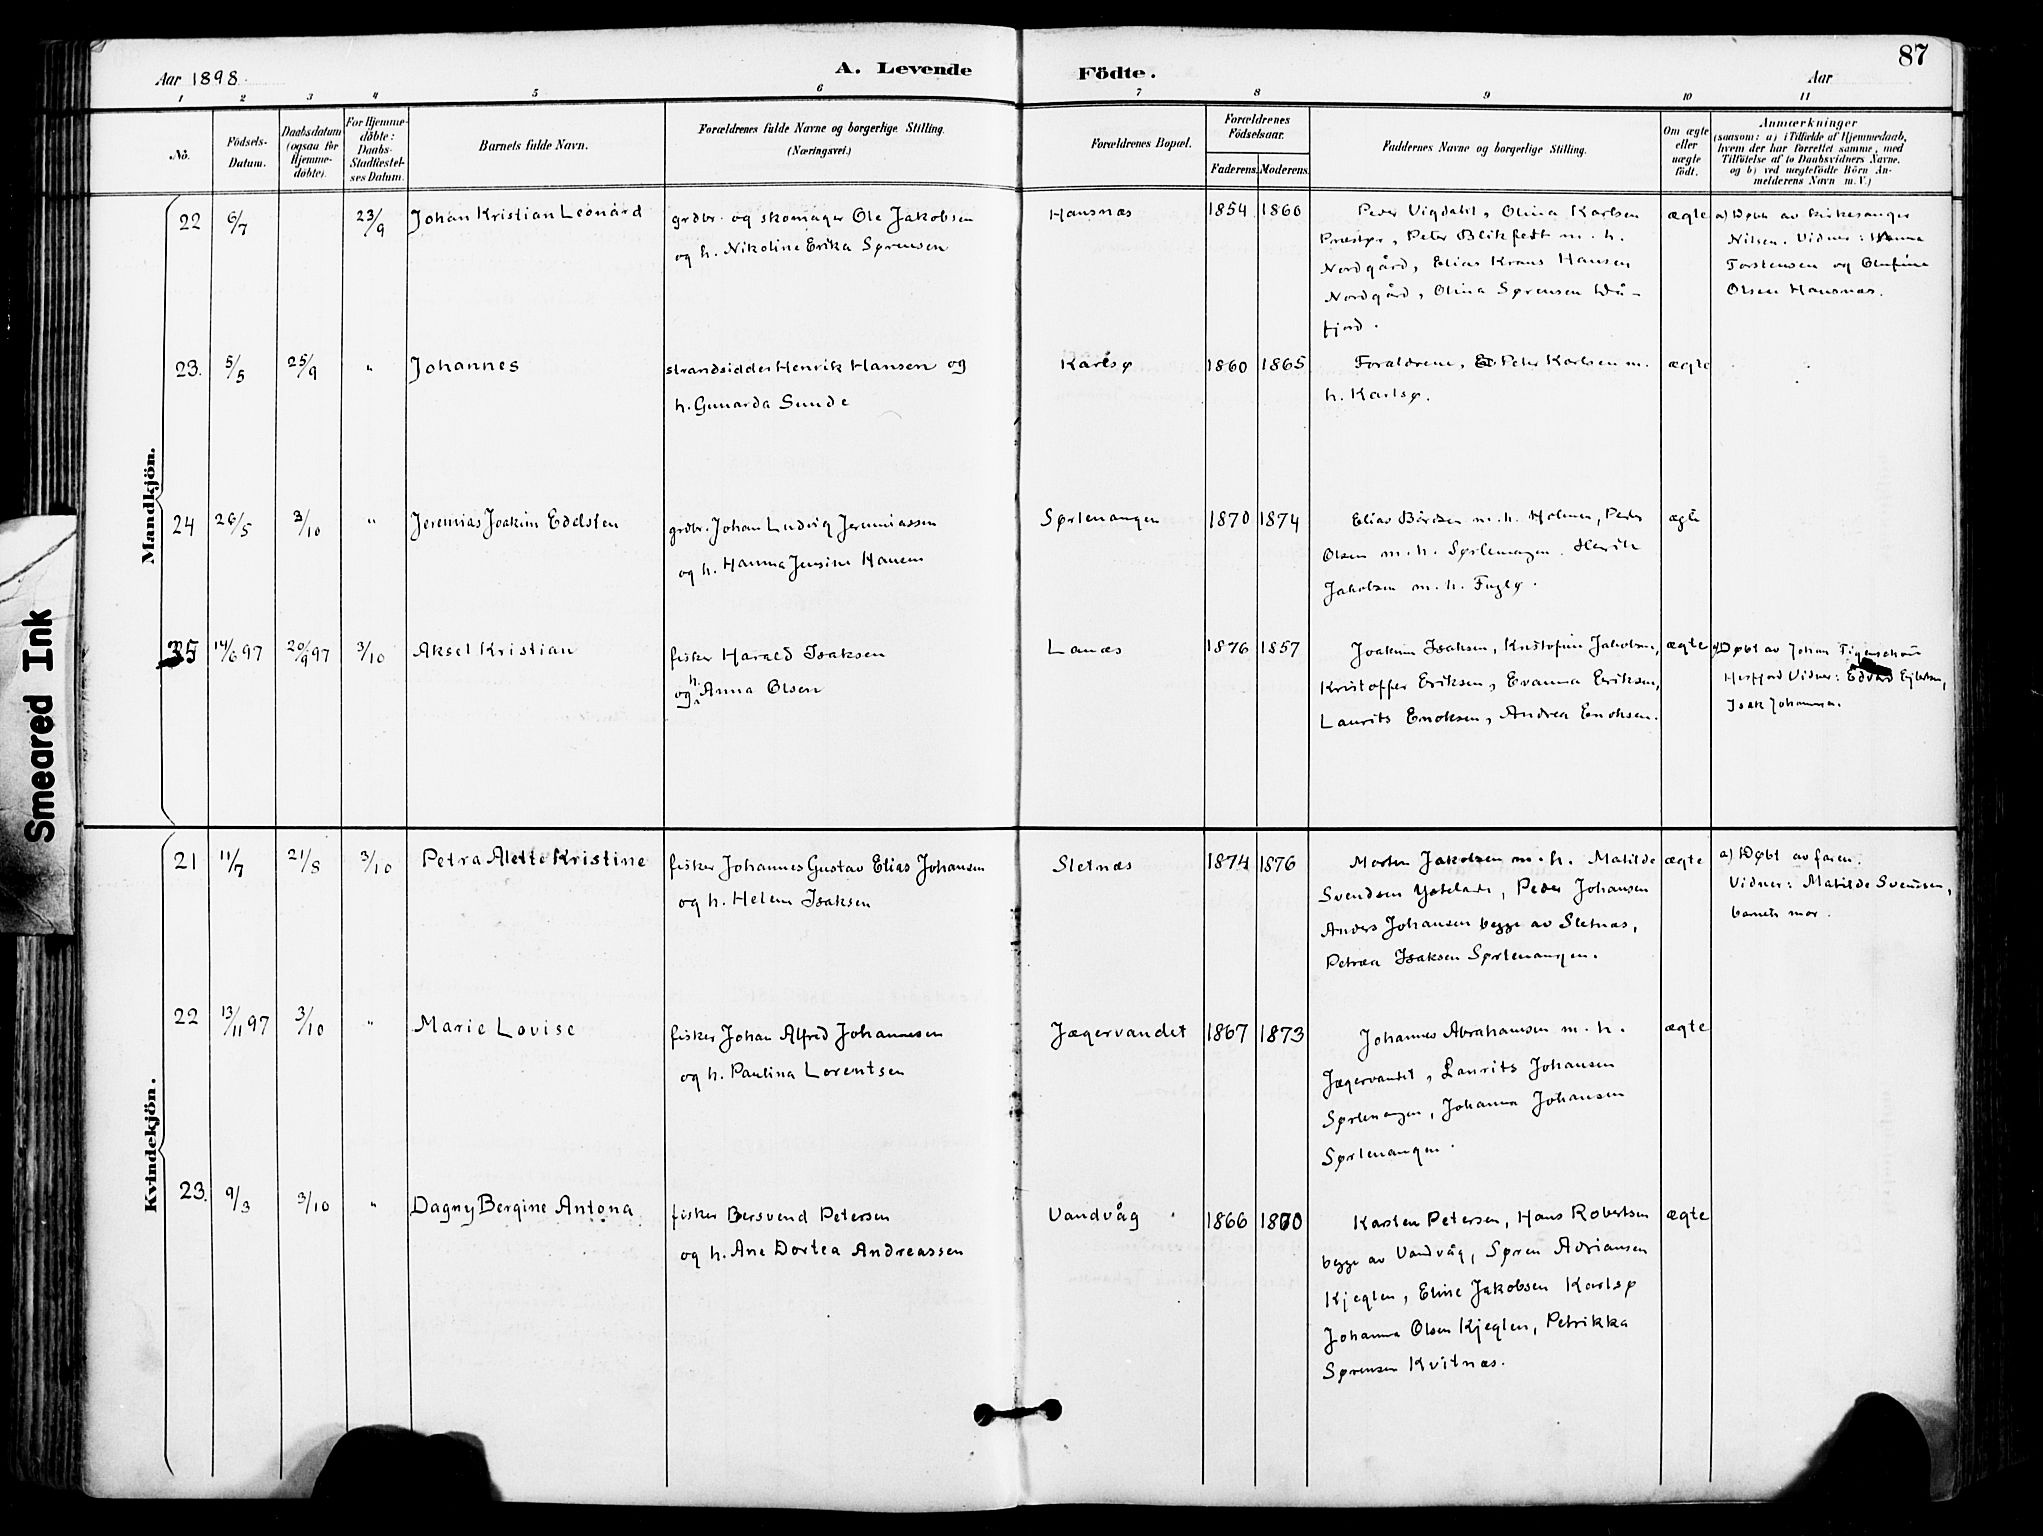 87
Aar 1898.
A. Levende
Födte.
Aar
1 2 3 4 5 6 7 8 9 10 11
No.
Födsels-
Datum.
Daabsdatum
(ogsaa for
Hjemme-
döbte).
For Hjemme-
döbte:
Daabs-
Stadfæstel-
ses Datum.
Barnets fulde Navn.
Forældrenes fulde Navne og borgerlige Stilling.
(Næringsvei.)
Forældrenes Bopæl.
Forældrenes
Födselsaar.
Faderens.
Moderens.
Faddernes Navne og borgerlige Stilling.
Om ægte
eller
uægte
födt.
Anmærkninger
(saasom: a) i Tilfælde af Hjemmedaab,
hvem der har forrettet samme, med
Tilföielse af to Daabsvidners Navne,
og b) ved uægtefödte Börn An-
melderens Navn m. V.)
Mandkjön.
22 6/7 23/9 Johan Kristian Leonard
grdbr. og skomager Ole Jakobsen
og h. Nikoline Erika Sørensen
Hansnæs 1854 1860
Peder Vigdahl, Olina Karlsen
Præstør, Peter Blikfeldt m. h.
Nordgård, Elias Kraus Hansen
Nordgård, Olina Sørensen Då-
fjord.
ægte
a) Døbt av kirkesanger
Nilsen. Vidner: Hanna
Torstensen og Olufine
Olsen Hansnæs.
23. 5/5 25/9 " Johannes
strandsidder Henrik Hansen og
h. Gunarda Sunde
Karlsø 1860 1865
Forældrene, Peter Karlsen m.
h. Karlsø.
ægte
24 26/5 3/10 " Jeremias Joakim Edelsten
grdbr. Johan Ludvig Jeremiassen
og h. Hanna Jensine Hansen
Sørlenangen 1870 1874
Elias Bårdsen m. h. Holmen, Peder
Olsen m. h. Sørlenangen. Henrik
Jakobsen m. h. Fuglø.
ægte
25 14/6 97 20/9 97 3/10 Aksel Kristian
fisker Harald Isaksen
og h. Anna Olsen
Lanæs 1876 1857
Joakim Isaksen, Kristofine Jakobsen,
Kristoffer Eriksen, Evanna Eriksen,
Laurits Enoksen, Andrea Enoksen.
ægte
a) Døbt av Johan
Vidner: Edvard
Isak Johannsen.
Kvindekjön.
21 11/7 21/8 3/10 Petra Alette Kristine
fisker Johannes Gustav Elias Johansen
og h. Helene Isaksen
Sletnæs 1874 1876
Morten Jakobsen m. h. Matilde
Svendsen, Peder Johansen
Anders Johansen begge av Sletnæs,
Petræa Isaksen Sørlenangen.
ægte
a) Døbt av faren.
Vidner: Matilde Svendsen,
barnets mor.
22 13/11 97 3/10 " Marie Lovise
fisker Johan Alfred Johannesen
og h. Paulina Lorentsen
Jægervandet 1867 1873
Johannes Abrahamsen m. h.
Jægervandet, Laurits Johansen
Sørlenangen, Johanna Johansen
Sørlenangen.
ægte
23. 9/3 3/10 " Dagny Bergine Antona
fisker Bersvend Petersen
og h. Ane Dortea Andreassen
Vandvåg 1866 1870
Karsten Petersen, Hans Robertsen
begge av Vandvåg, Søren Adriansen
Kjeglen, Eline Jakobsen Karlsø
Johanna Olsen Kjeglen, Petrikka
Sørensen Kvitnæs.
ægte
Smeared Ink